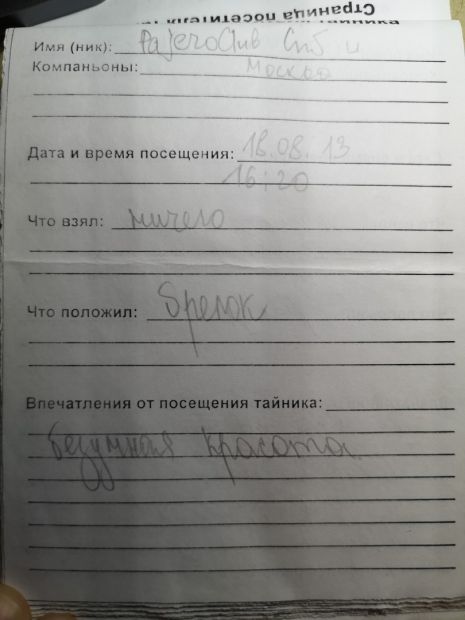 Страница посетителя
Имя (ник): PajeroClub Спб и
Компаньоны: Москва
Дата и время посещения: 18.08.13
16:20
Что взял: ничего
Что положил: брелок
Впечатления от посещения тайника:
безумная красота